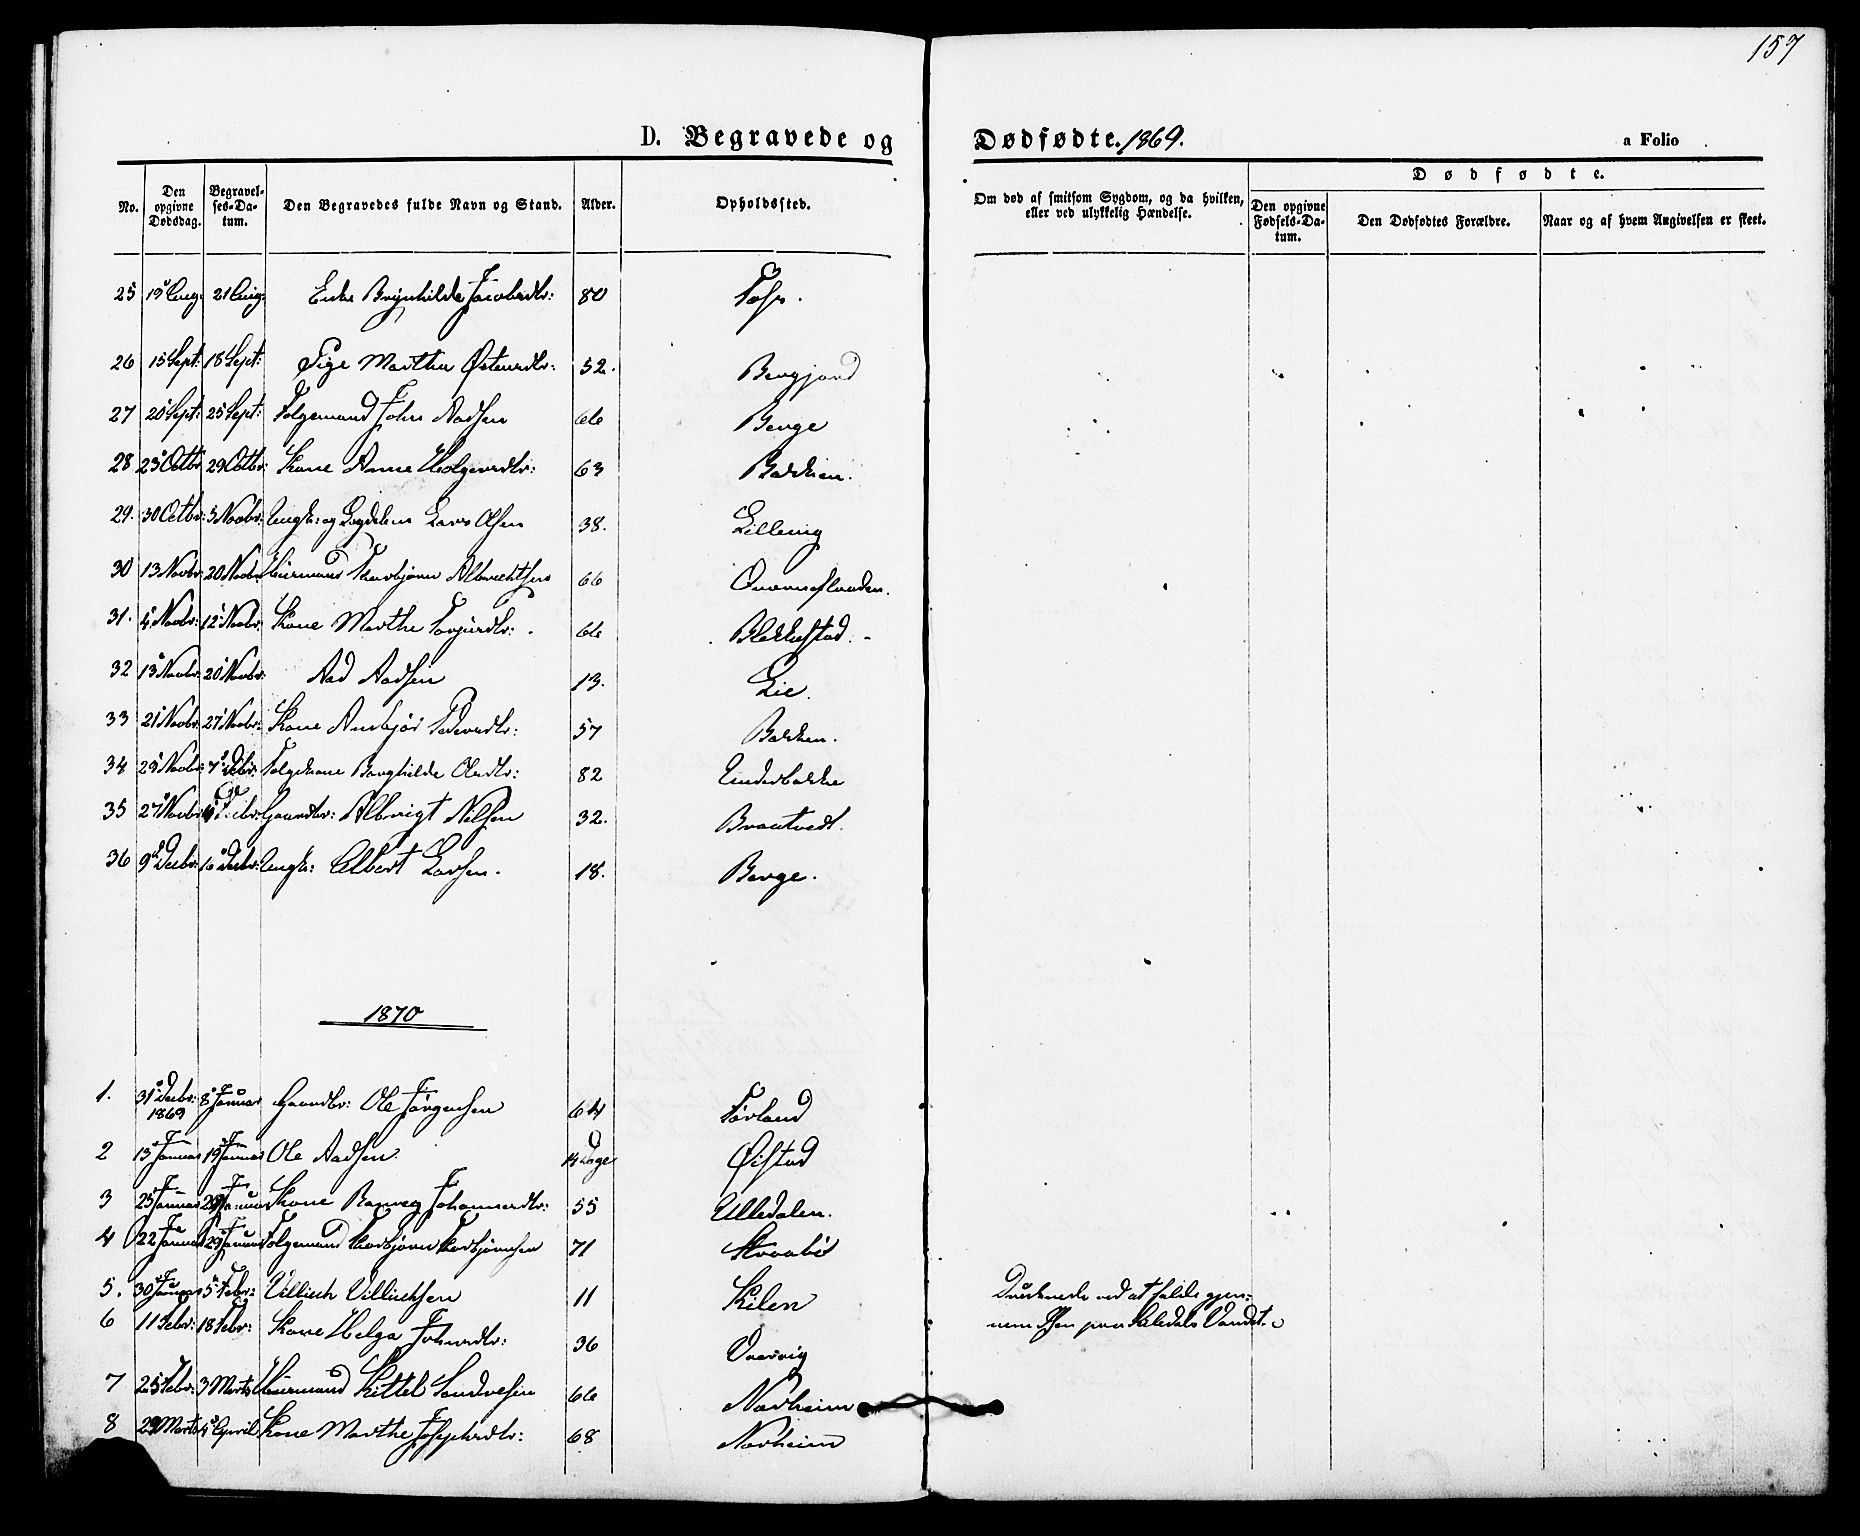 157
D. Begravede og Dødfødte. 1869.
a Folio
No.
Den opgivne Dødsdag.
Begravelses-Datum.
Den Begravedes fulde Navn og Stand.
Alder.
Opholdssted.
Om død af smitsom Sygdom, og da hvilken, eller ved ulykkelig Hændelse.
Dødfødte.
Den opgivne Fødsels-Datum.
Den Dødfødtes Forældre.
Naar og af hvem Angivelsen er skeet.
25 19 Aug: 21 Aug: Enke Brynhilde Jacobsdtr: 80
26 15 Sept: 18 Sept: Pige Marthe Østensdtr: 52. Bergjord
27 20 Sept: 25 Sept: Folgemand John Aadsen 66 Berge
28 23 Octbr: 29 Octbr: Kone Anne Holgersdtr: 63 Bakken.
29. 30 Octbr: 5 Novbr: Ungk: og Lars Olsen 38. Lilleng
30 13 Novbr: 20 Novbr: Huusmand Thorbjørn Albrechtsen 66
31. 4 Novbr: 12 Novbr: Kone Marthe 66 Blekkestad.
32 13 Novbr: 20 Novbr: Aad Aadsen 13. Lie.
33 21 Novbr: 27 Novbr: Kone Anbjør Pedersdtr: 57 Bakken.
34 29 Novbr: 7 Decbr: Folgekone Borghilde Olsdtr: 82 Underbakke
35 27 Novbr: Decbr: Gaardbr: Albregt Nilsen 32. Brautvedt.
36 9 Decbr: 16 Decbr: Ungk: Albert Larsen. 18. Berge.
1870
1. 31 Decbr: 1869 8 Januar Gaardbr: Ole Jørgensen 64 Førland
2 13 Januar 19 Januar Ole Aadsen. 14 Dage Øistad
3 25 Januar 29 Januar Kone Ranveg Johannesdtr: 55 Ulledalen.
4 22 Januar 29 Januar Folgemand Thorbjørn Thorbjørnsen 71 Straabø
5. 30 Januar 5 Febr: Villich Villichsen 11 Kilen Druknede ved at falde gjen-
nem Isen paa Vandet.
6 11 Febr: 18 Febr: Kone Helga Johnsdtr: 36 Vaarvig
7 25 Febr: 3 Marts Huusmand Kittel Sondresen 66 Nordheim
8 29 Marts 4 April Kone Marthe Josephsdtr: 68 Norheim